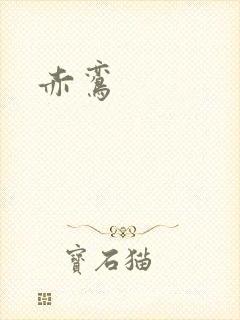 赤鸾
寳石猫